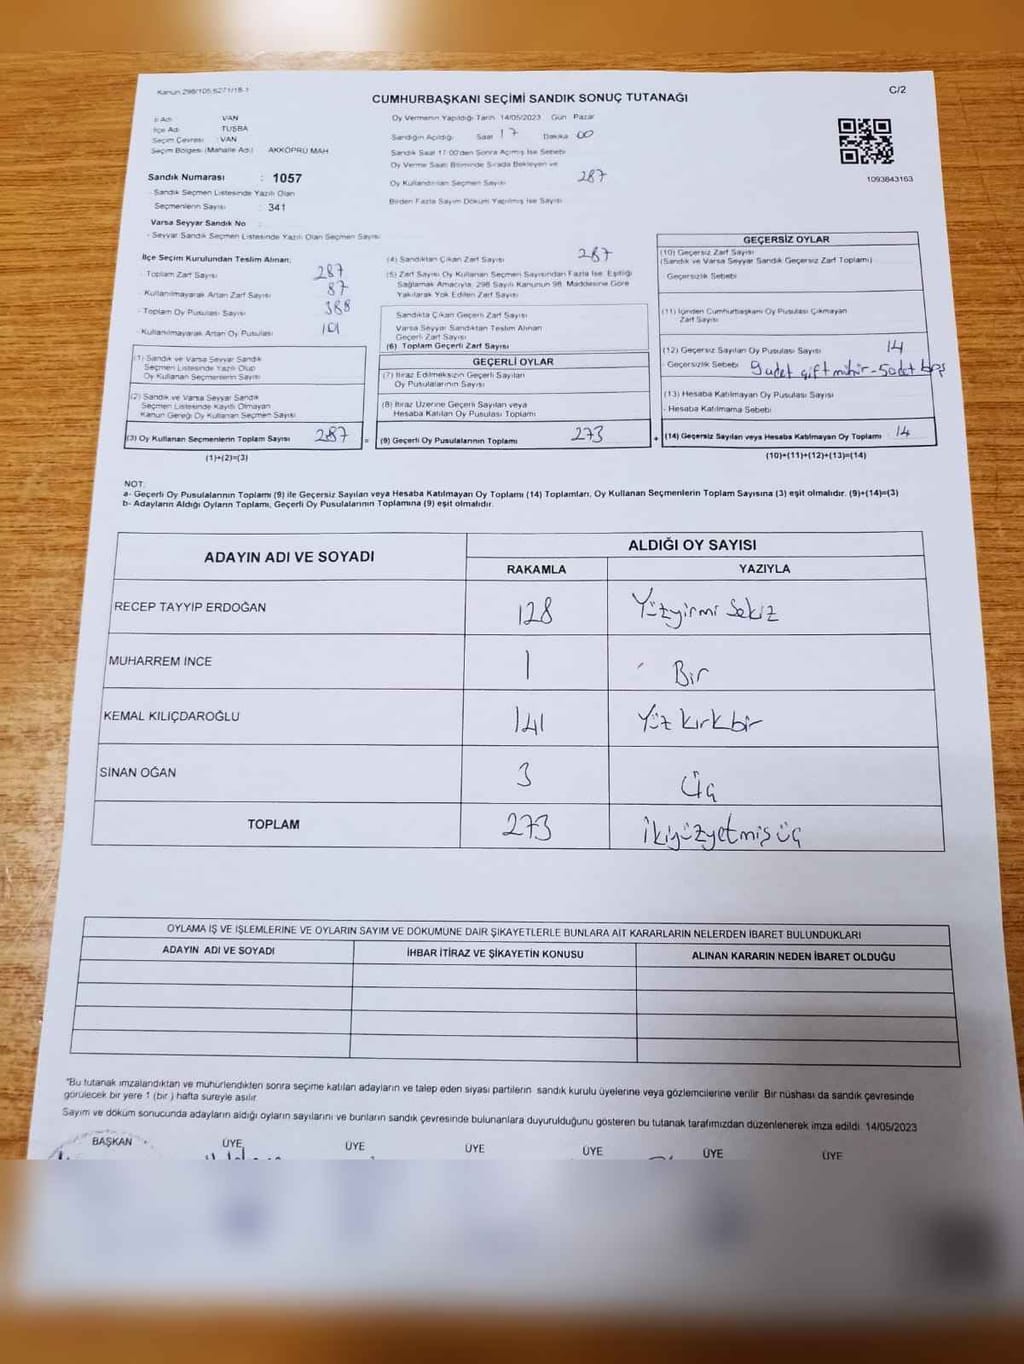 Kanun 298/105,6271/18-1
C/2
CUMHURBAŞKANI SEÇİMİ SANDIK SONUÇ TUTANAĞI
İl Adı : VAN
İlçe Adı : TUŞBA
Seçim Çevresi : VAN
Seçim Bölgesi (Mahalle Adı) : AKKÖPRÜ MAH
Sandık Numarası : 1057
- Sandık Seçmen Listesinde Yazılı Olan
Seçmenlerin Sayısı : 341
Varsa Seyyar Sandık No
- Seyyar Sandık Seçmen Listesinde Yazılı Olan Seçmen Sayısı
Oy Vermenin Yapıldığı Tarih 14/05/2023 Gün Pazar
Sandığın Açıldığı Saat 17 Dakika 00
Sandık Saat 17:00'den Sonra Açılmış İse Sebebi
Oy Verme Saati Bitiminde Sırada Bekleyen ve
Oy Kullandırılan Seçmen Sayısı 287
Birden Fazla Sayım Döküm Yapılmış İse Sayısı
1093843163
İlçe Seçim Kurulundan Teslim Alınan;
- Toplam Zarf Sayısı 287
- Kullanılmayarak Artan Zarf Sayısı 87
- Toplam Oy Pusulası Sayısı 388
- Kullanılmayarak Artan Oy Pusulası 101
(1) Sandık ve Varsa Seyyar Sandık
Seçmen Listesinde Yazılı Olup
Oy Kullanan Seçmenlerin Sayısı
(2) Sandık ve Varsa Seyyar Sandık
Seçmen Listesinde Kayıtlı Olmayan
Kanun Gereği Oy Kullanan Seçmen Sayısı
(3) Oy Kullanan Seçmenlerin Toplam Sayısı 287 =
(1)+(2)=(3)
(4) Sandıktan Çıkan Zarf Sayısı 287
(5) Zarf Sayısı Oy Kullanan Seçmen Sayısından Fazla İse, Eşitliği
Sağlamak Amacıyla, 298 Sayılı Kanunun 98. Maddesine Göre
Yakılarak Yok Edilen Zarf Sayısı
Sandıkta Çıkan Geçerli Zarf Sayısı
Varsa Seyyar Sandıktan Teslim Alınan
Geçerli Zarf Sayısı
(6) Toplam Geçerli Zarf Sayısı
GEÇERLİ OYLAR
(7) İtiraz Edilmeksizin Geçerli Sayılan
Oy Pusulalarının Sayısı
(8) İtiraz Üzerine Geçerli Sayılan veya
Hesaba Katılan Oy Pusulası Toplamı
(9) Geçerli Oy Pusulalarının Toplamı 273 +
GEÇERSİZ OYLAR
(10) Geçersiz Zarf Sayısı
(Sandık ve Varsa Seyyar Sandık Geçersiz Zarf Toplamı)
- Geçersizlik Sebebi
(11) İçinden Cumhurbaşkanı Oy Pusulası Çıkmayan
Zarf Sayısı
(12) Geçersiz Sayılan Oy Pusulası Sayısı 14
- Geçersizlik Sebebi 9 adet çift mühür - 5 adet boş
(13) Hesaba Katılmayan Oy Pusulası Sayısı
- Hesaba Katılmama Sebebi
(14) Geçersiz Sayılan veya Hesaba Katılmayan Oy Toplamı 14
(10)+(11)+(12)+(13)=(14)
NOT:
a- Geçerli Oy Pusulalarının Toplamı (9) ile Geçersiz Sayılan veya Hesaba Katılmayan Oy Toplamı (14) Toplamları, Oy Kullanan Seçmenlerin Toplam Sayısına (3) eşit olmalıdır. (9)+(14)=(3)
b- Adayların Aldığı Oyların Toplamı, Geçerli Oy Pusulalarının Toplamına (9) eşit olmalıdır.
ADAYIN ADI VE SOYADI
ALDIĞI OY SAYISI
RAKAMLA YAZIYLA
RECEP TAYYİP ERDOĞAN 128 Yüzyirmi Sekiz
MUHARREM İNCE 1 Bir
KEMAL KILIÇDAROĞLU 141 Yüz kırkbir
SİNAN OĞAN 3 Üç
TOPLAM 273 İkiyüzyetmiş üç
OYLAMA İŞ VE İŞLEMLERİNE VE OYLARIN SAYIM VE DÖKÜMÜNE DAİR ŞİKAYETLERLE BUNLARA AİT KARARLARIN NELERDEN İBARET BULUNDUKLARI
ADAYIN ADI VE SOYADI İHBAR İTİRAZ VE ŞİKAYETİN KONUSU ALINAN KARARIN NEDEN İBARET OLDUĞU
"Bu tutanak imzalandıktan ve mühürlendikten sonra seçime katılan adayların ve talep eden siyasi partilerin sandık kurulu üyelerine veya gözlemcilerine verilir. Bir nüshası da sandık çevresinde
görülecek bir yere 1 (bir) hafta süreyle asılır.
Sayım ve döküm sonucunda adayların aldığı oyların sayılarını ve bunların sandık çevresinde bulunanlara duyurulduğunu gösteren bu tutanak tarafımızdan düzenlenerek imza edildi. 14/05/2023
BAŞKAN ÜYE ÜYE ÜYE ÜYE ÜYE ÜYE